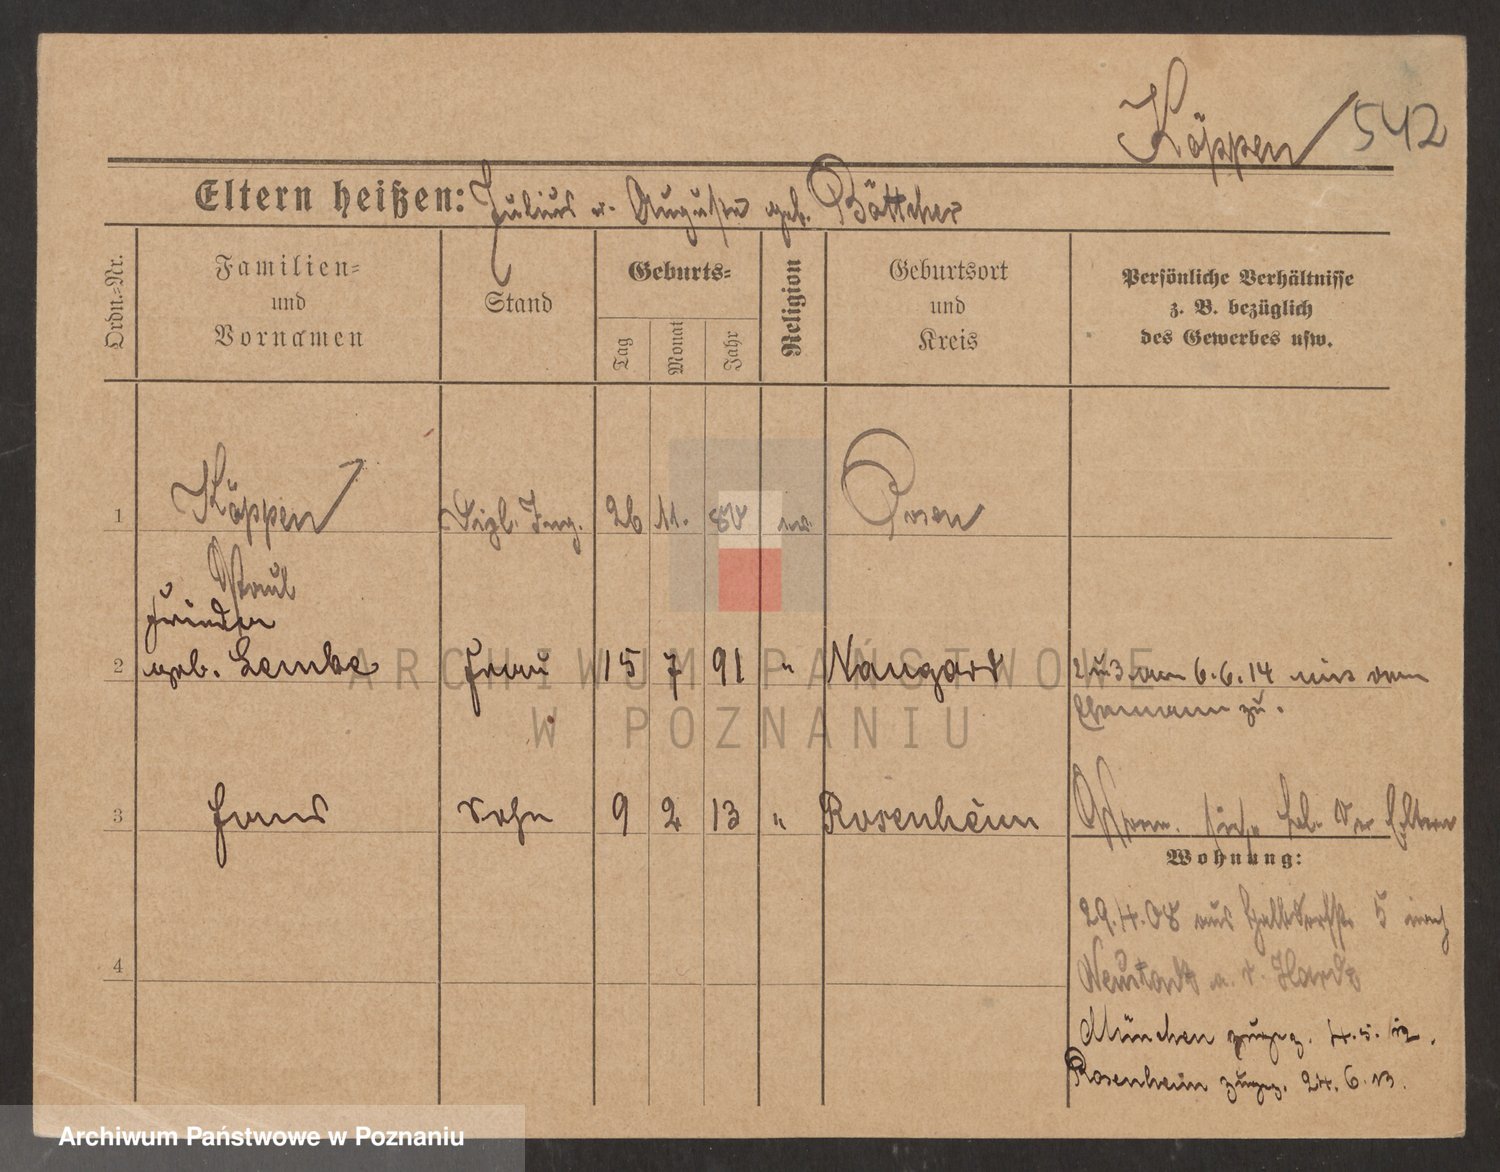 Köppen 542
Eltern heißen: Julius u. Auguste geb. Böttcher
Ordn.-Nr.
Familien- und Vornamen
Stand
Geburts-
Tag
Monat
Jahr
Religion
Geburtsort und Kreis
Persönliche Verhältnisse
z. B. bezüglich
des Gewerbes usw.
1 Köppen Dipl. Ing. 26 11. ev. Posen
Paul
2 geb. Lembke Frau 15 7 91 " Naugard
2 u 3 am 6.6.14 mit dem
Ehemann zu.
3 Hans Sohn 9 2 13 " Rosenheim
siehe bei der Eltern
Wohnung:
29.4.08 aus 5 nach
4
Neustadt a. d. Hardt
München zugez. 4.5.12.
Rosenheim zugez. 24.6.13.
ARCHIWUM PAŃSTWOWE
W POZNANIU
Archiwum Państwowe w Poznaniu